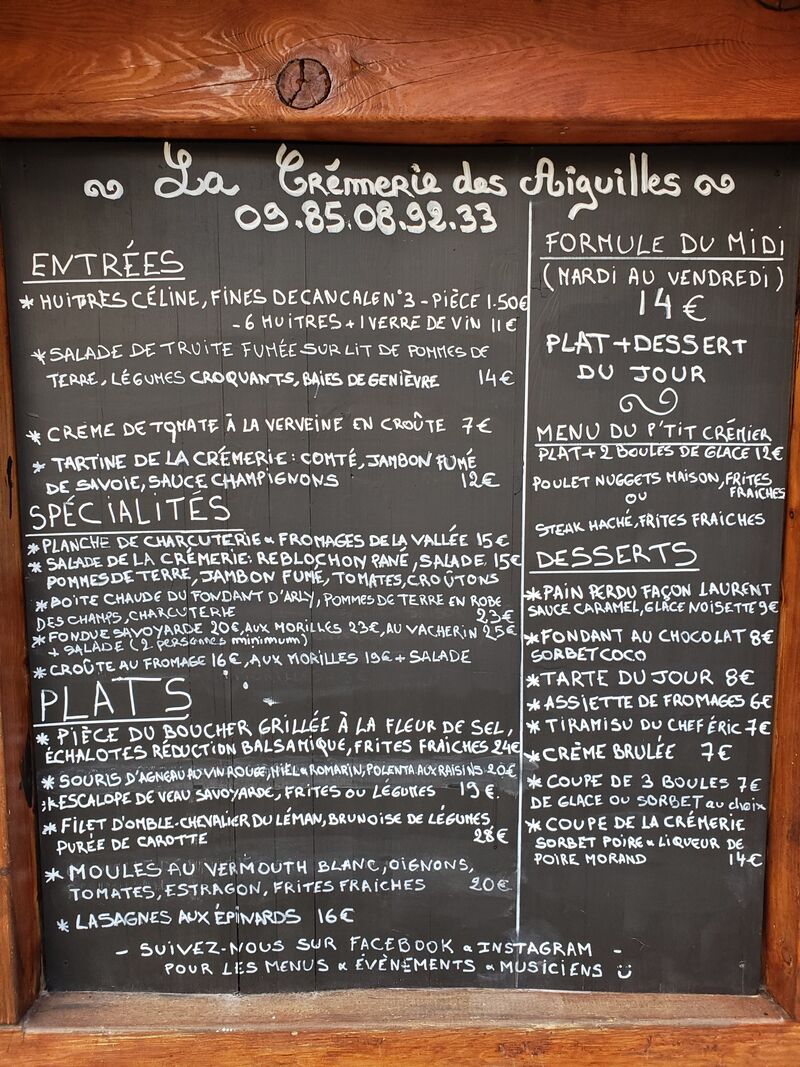 La Crémerie des Aiguilles
09.85.08.92.33
ENTRÉES
* HUITRES CÉLINE, FINES DE CANCALE N°3 - PIÈCE 1.50€
- 6 HUITRES + 1 VERRE DE VIN 11€
* SALADE DE TRUITE FUMÉE SUR LIT DE POMMES DE
TERRE, LÉGUMES CROQUANTS, BAIES DE GENIÈVRE 14€
* CREME DE TOMATE À LA VERVEINE EN CROÛTE 7€
* TARTINE DE LA CRÉMERIE: COMTÉ, JAMBON FUMÉ
DE SAVOIE, SAUCE CHAMPIGNONS 12€
SPÉCIALITÉS
* PLANCHE DE CHARCUTERIE & FROMAGES DE LA VALLÉE 15€
* SALADE DE LA CRÉMERIE: REBLOCHON PANÉ, SALADE, 15€
POMMES DE TERRE, JAMBON FUMÉ, TOMATES, CROÛTONS
* BOITE CHAUDE DU FONDANT D'ARLY, POMMES DE TERRE EN ROBE
DES CHAMPS, CHARCUTERIE 23€
* FONDUE SAVOYARDE 20€, AUX MORILLES 23€, AU VACHERIN 25€
+ SALADE (2 personnes minimum)
* CROÛTE AU FROMAGE 16€, AUX MORILLES 19€ + SALADE
PLATS
* PIÈCE DU BOUCHER GRILLÉE À LA FLEUR DE SEL,
ÉCHALOTES RÉDUCTION BALSAMIQUE, FRITES FRAÎCHES 24€
* SOURIS D'AGNEAU AU VIN ROUGE, MIEL & ROMARIN, POLENTA AUX RAISINS 20€
* ESCALOPE DE VEAU SAVOYARDE, FRITES OU LÉGUMES 19€
* FILET D'OMBLE-CHEVALIER DU LÉMAN, BRUNOISE DE LÉGUMES,
PURÉE DE CAROTTE 28€
* MOULES AU VERMOUTH BLANC, OIGNONS,
TOMATES, ESTRAGON, FRITES FRAICHES 20€
* LASAGNES AUX ÉPINARDS 16€
FORMULE DU MIDI
(MARDI AU VENDREDI)
14€
PLAT + DESSERT
DU JOUR
MENU DU P'TIT CRÉMIER
PLAT + 2 BOULES DE GLACE 12€
POULET NUGGETS MAISON, FRITES
FRAICHES
OU
STEAK HACHÉ, FRITES FRAICHES
DESSERTS
* PAIN PERDU FAÇON LAURENT
SAUCE CARAMEL, GLACE NOISETTE 9€
* FONDANT AU CHOCOLAT 8€
SORBET COCO
* TARTE DU JOUR 8€
* ASSIETTE DE FROMAGES 6€
* TIRAMISU DU CHEF ÉRIC 7€
* CRÈME BRULÉE 7€
* COUPE DE 3 BOULES 7€
DE GLACE OU SORBET au choix
* COUPE DE LA CRÉMERIE
SORBET POIRE & LIQUEUR DE
POIRE MORAND 14€
- SUIVEZ-NOUS SUR FACEBOOK & INSTAGRAM -
POUR LES MENUS & ÉVÈNEMENTS & MUSICIENS